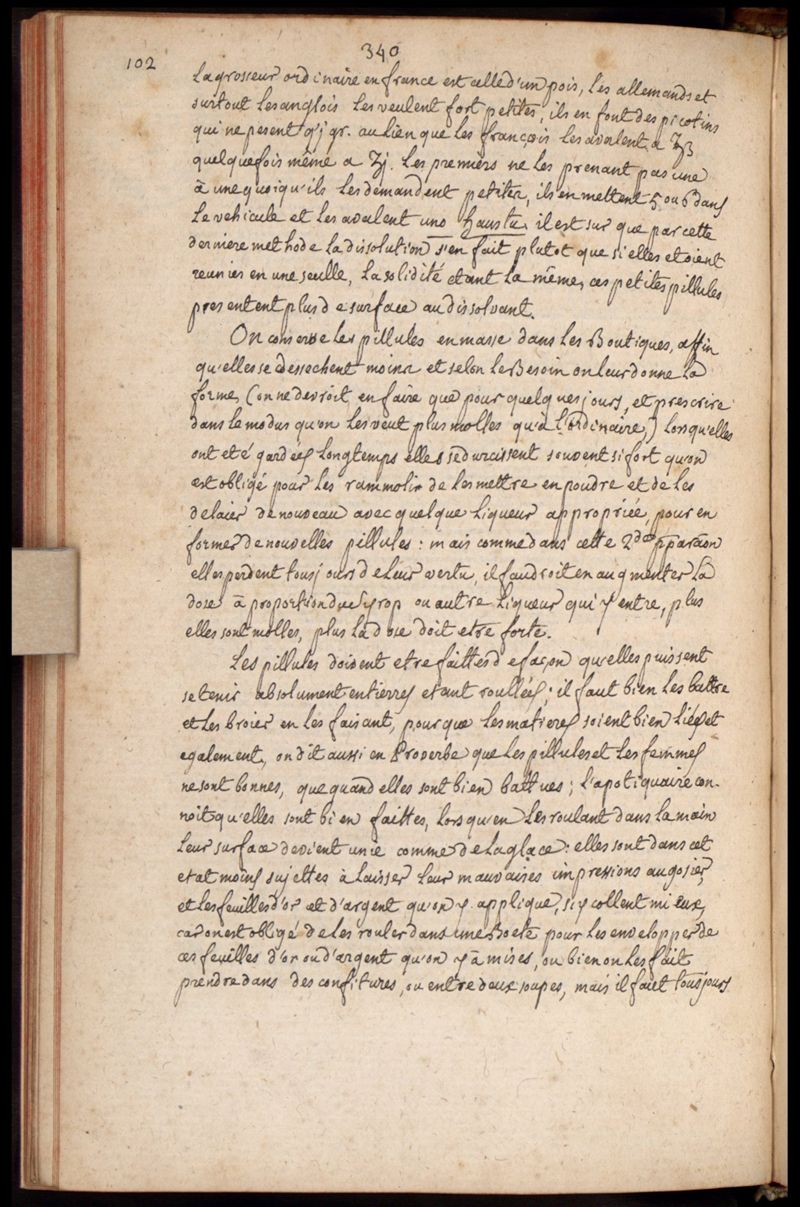 340
102
La grosseur ordinaire en france est celle d'un pois, les allemands et
surtout les anglois les veulent fort petites, ils en font des picotins
qui ne pesent q'j gr. au lieu que les françois les avalent a ʒβ
quelquefois même a ʒj. Les premiers ne les prenant pas une
à une quoiqu'ils les demandent petites, ils en mettent 5 ou 6 dans
le vehicule et les avalent uno haustu, il est sur que par cette
derniere methode la dissolution s'en fait plutot que si elles etoient
reunies en une seulle, la solidité etant la même, ces petites pillules
presentent plus de surface au dissolvant.
On conserve les pillules en masse dans les Boutiques, affin
qu'elles se dessechent moins et selon le Besoin on leur donne la
forme, (on ne devroit en faire que pour quelques jours, et prescrire
dans le modus qu'on les veut plus molles qu'à l'ordinaire,) lorsqu'elles
ont eté gardées longtemps elles se durcissent souvent si fort qu'on
est obligé pour les rammolir de les mettre en poudre et de les
delaier de nouveau avec quelque liqueur appropriée, pour en
former de nouvelles pillules : mais comme dans cette 2de pparaõn
elles perdent tousjours de leur vertu, il faudroit en augmenter la
dose à proportion du syrop ou autre liqueur qui y entre, plus
elles sont molles, plus la dose doit etre forte.
Les pillules doivent etre faittes de façon qu'elles puissent
se tenir absolument entierres etant roullées ; il faut bien les battre
et les broier en les faisant, pour que les matieres soient bien liées et
egalement, on dit aussi en Proverbe que les pillules et les femmes
ne sont bonnes, que quand elles sont bien battues ; l'apotiquaire con-
noit qu'elles sont bien faittes, lors qu'en les roulant dans la main
leur surface devient unie comme de la glace : elles sont dans cet
etat moins sujettes à laisser leur mauvaises impressions au gosier,
et les feuilles d'or et d'argent qu'on y applique, s'y collent mieux,
car on est obligé de les rouler dans une Boete pour les envelopper de
ces feuilles d'or ou d'argent qu'on y à mises, ou bien on les fait
prendre dans des confitures, ou entre deux soupes, mais il faut tousjours